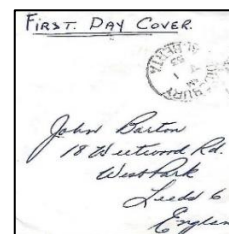 FIRST. DAY COVER.
John Barton
18 Westwood Rd.
West Park
Leeds 6
England